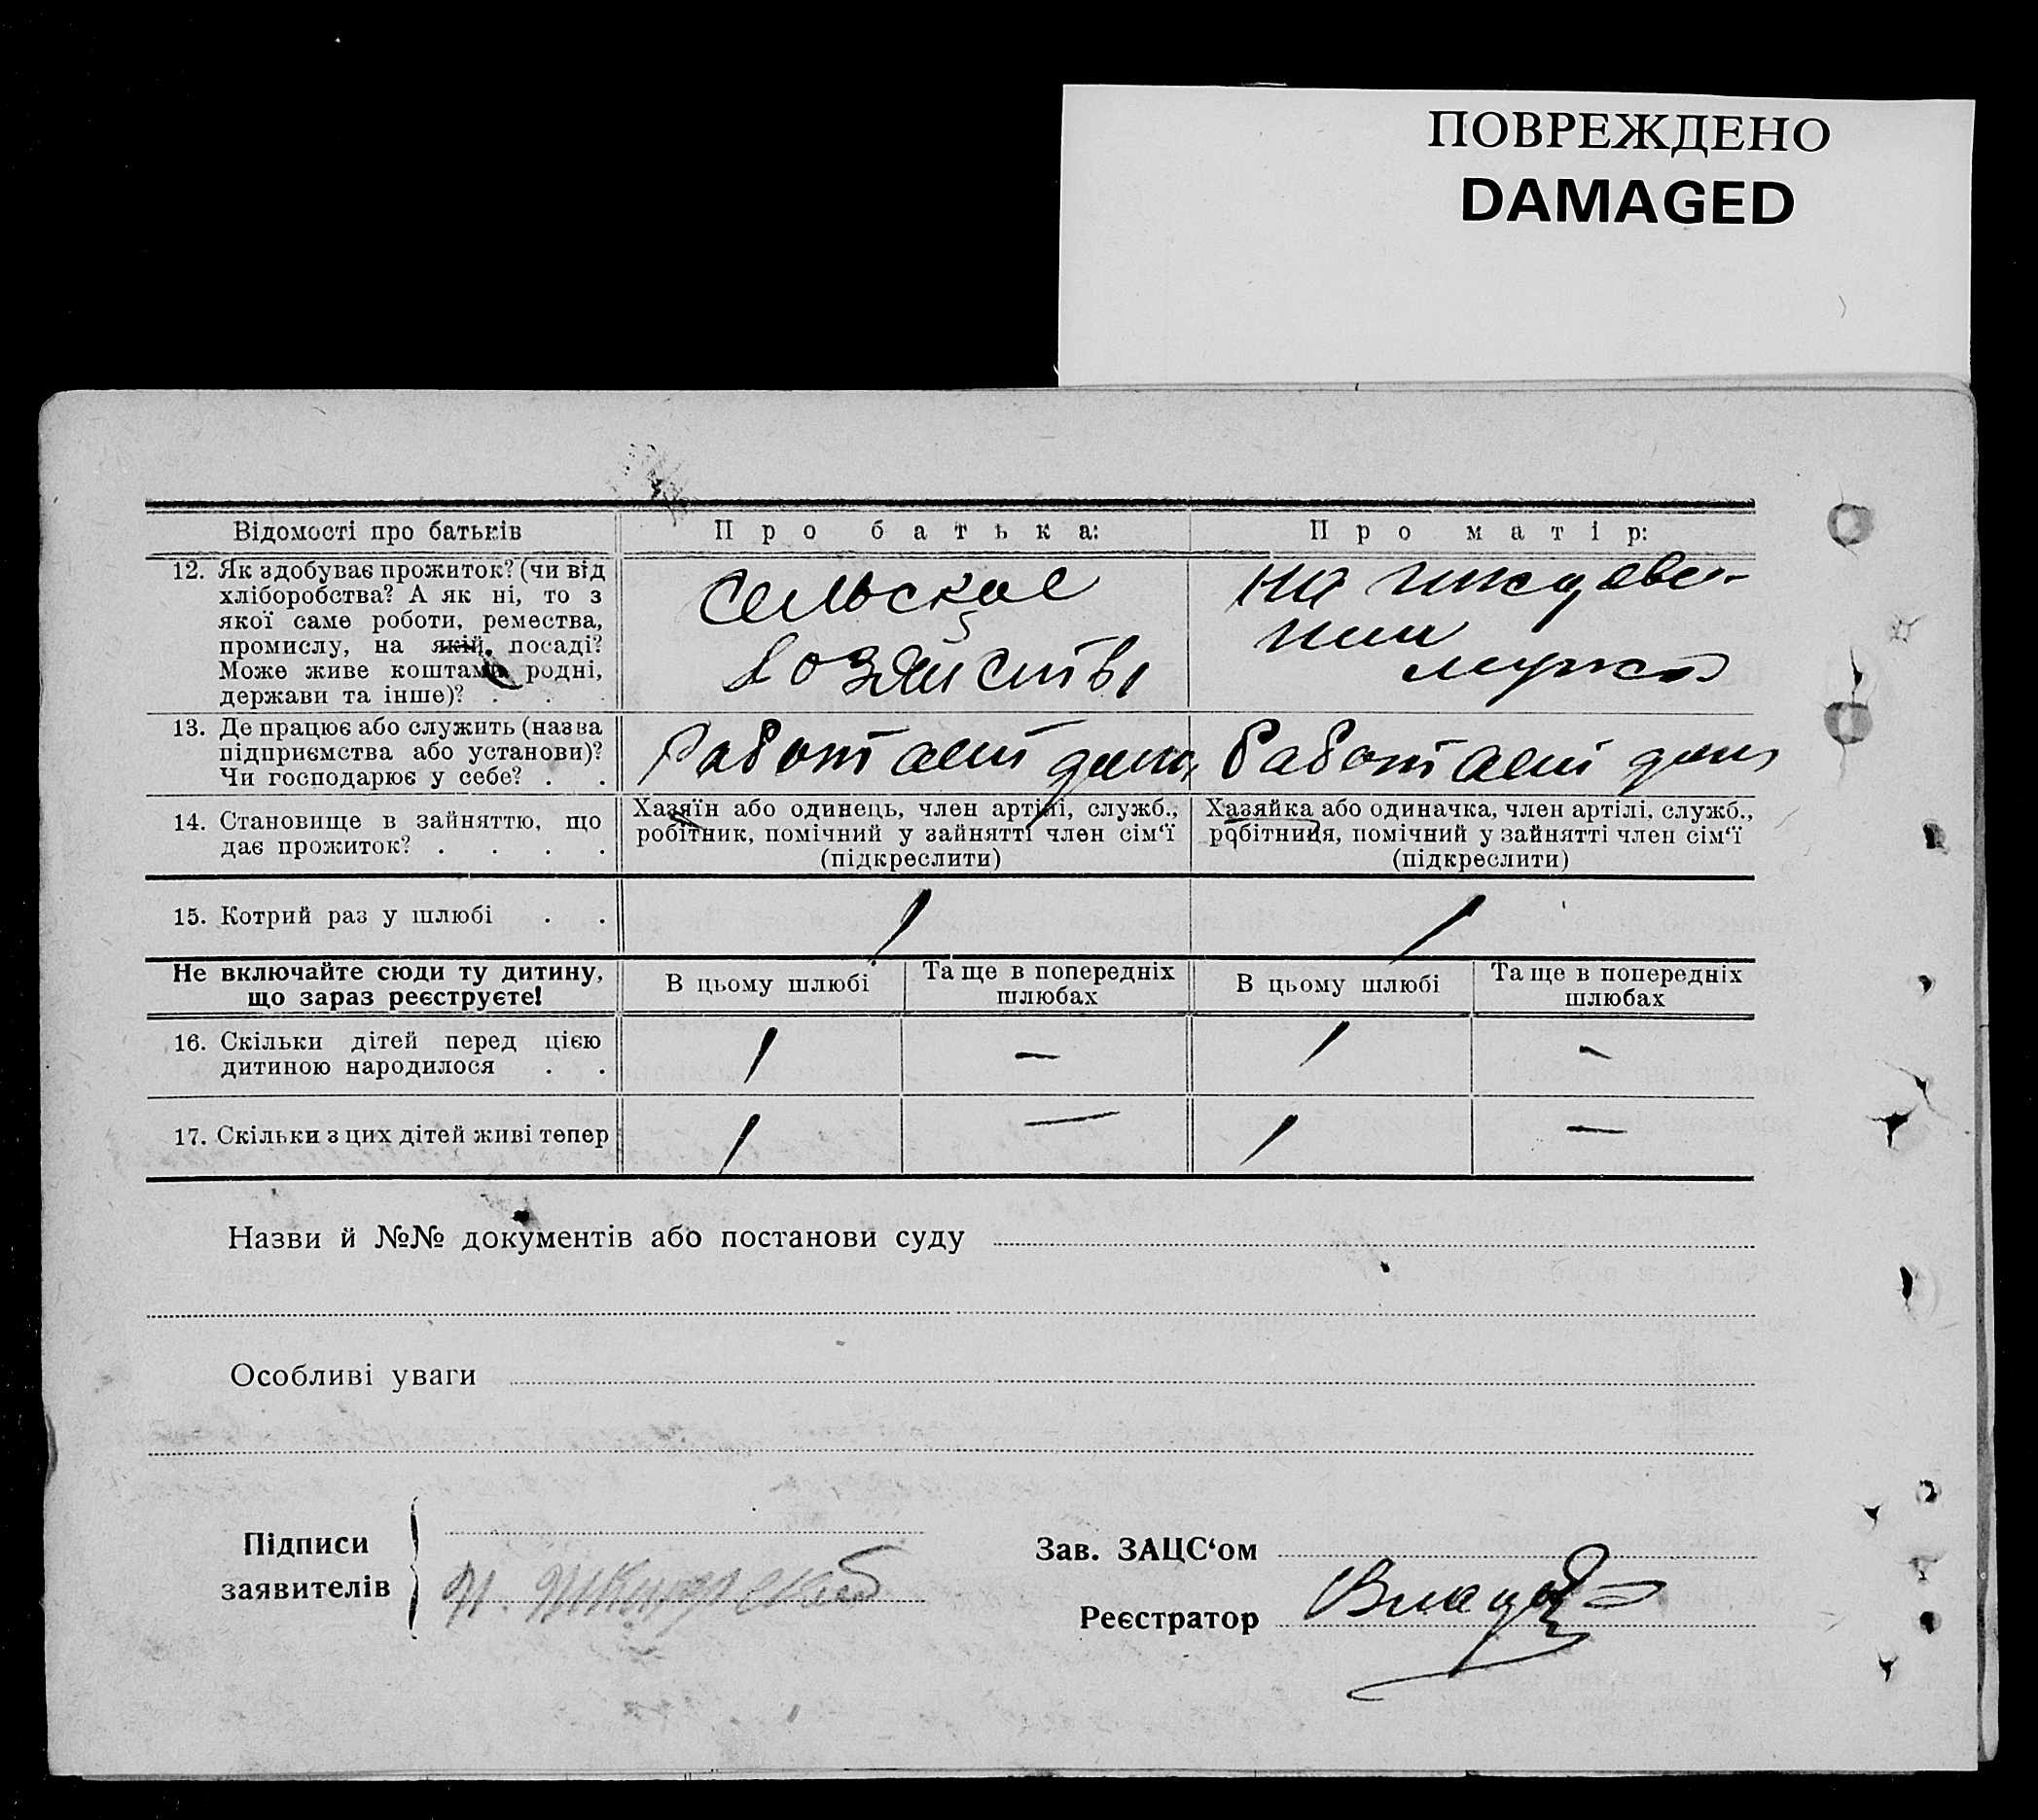 ПОВРЕЖДЕНО
DAMAGED
Відомості про батьків
Про батька:
Про матір:
12. Як здобуває прожиток? (чи від
хліборобства? А як ні, то з
якої саме роботи, ремества,
промислу, на якій посаді?
Може живе коштами родні,
держави та інше)? . .
Сельское
хозяйство
на иждеве-
нии
мужа
13. Де працює або служить (назва
підприємства або установи)?
Чи господарює у себе? . .
Работает дома
Работает дома
14. Становище в зайняттю, що
дає прожиток? . . . .
Хазяїн або одинець, член артілі, служб.,
робітник, помічний у зайнятті член сім‘ї
(підкреслити)
Хазяйка або одиначка, член артілі, служб.,
робітниця, помічний у зайнятті член сім‘ї
(підкреслити)
15. Котрий раз у шлюбі . .
1
1
Не включайте сюди ту дитину,
що зараз реєструєте!
В цьому шлюбі
Та ще в попередніх
шлюбах
В цьому шлюбі
Та ще в попередніх
шлюбах
16. Скільки дітей перед цією
дитиною народилося . .
1
—
1
—
17. Скільки з цих дітей живі тепер
1
—
1
—
Назви й №№ документів або постанови суду
Особливі уваги
Підписи
заявителів
Зав. ЗАЦС‘ом
Реєстратор